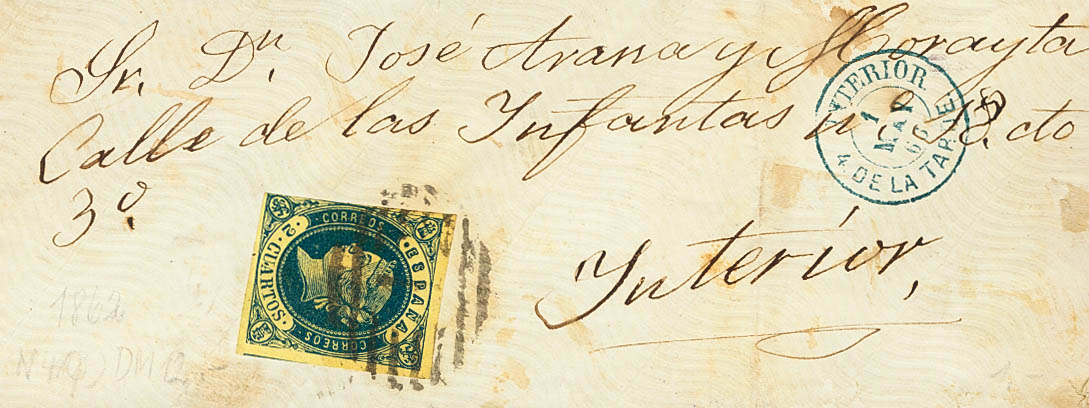 Sr. Dn. José Arana y Morayta
Calle de las Infantas n 18. cto
3º.
Interior,
INTERIOR
1
MAY
66
4. DE LA TARDE
CORREOS
ESPAÑA
2·CUARTOS·
CORREOS
1862